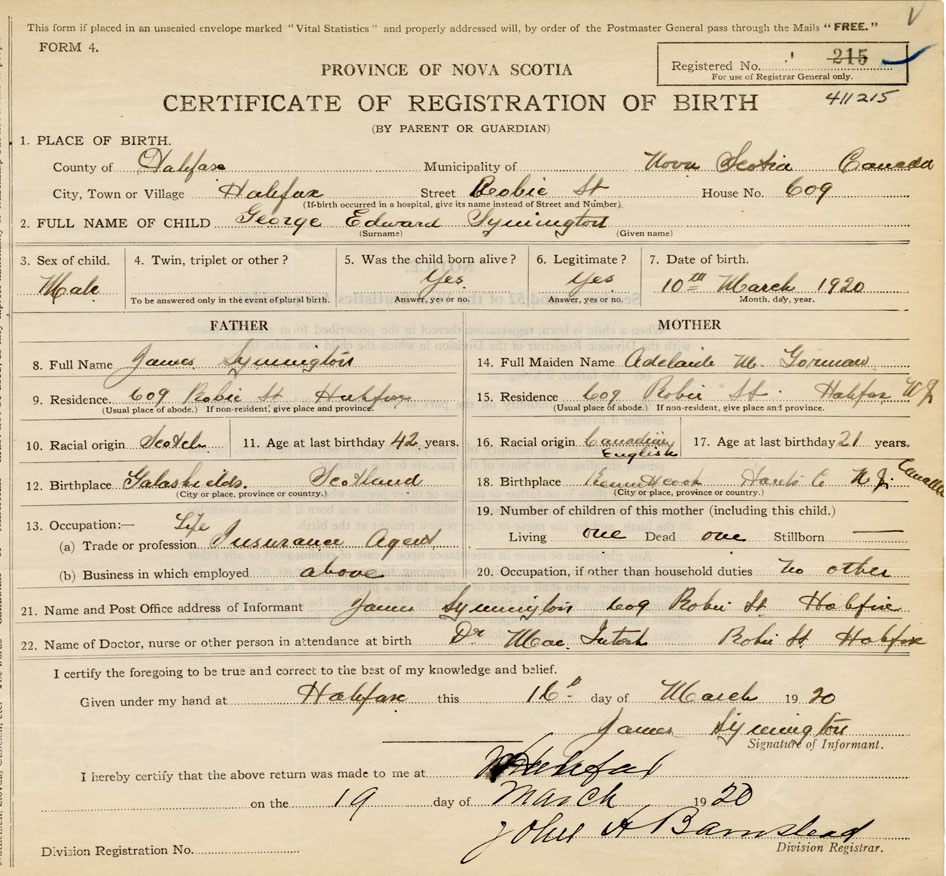 This form if placed in an unsealed envelope marked "Vital Statistics" and properly addressed will, by order of the Postmaster General pass through the Mails "FREE."
FORM 4.
Registered No. 215
For use of Registrar General only.
411215
PROVINCE OF NOVA SCOTIA
CERTIFICATE OF REGISTRATION OF BIRTH
(BY PARENT OR GUARDIAN)
1. PLACE OF BIRTH.
County of Halifax Municipality of Nova Scotia Canada
City, Town or Village Halifax Street Robie St House No. 609
(If birth occurred in a hospital, give its name instead of Street and Number).
2. FULL NAME OF CHILD George Edward Symington
(Surname) (Given name)
3. Sex of child. 4. Twin, triplet or other? 5. Was the child born alive? 6. Legitimate? 7. Date of birth.
Male Yes Yes 10th March 1920
To be answered only in the event of plural birth. Answer, yes or no. Answer, yes or no. Month, day, year.
FATHER MOTHER
8. Full Name James Symington 14. Full Maiden Name Adelaide M. Gorman
9. Residence. 609 Robie St Halifax 15. Residence 609 Robie St. Halifax
(Usual place of abode.) If non-resident, give place and province. (Usual place of abode.) If non-resident, give place and province.
10. Racial origin Scotch 11. Age at last birthday 42 years. 16. Racial origin Canadian English 17. Age at last birthday 21 years.
12. Birthplace Galashields. Scotland 18. Birthplace Kennetcook Hants C N.S. Canada
(City or place, province or country.) (City or place, province or country.)
13. Occupation:— 19. Number of children of this mother (including this child.)
(a) Trade or profession Life Insurance Agent Living one Dead one Stillborn —
(b) Business in which employed above 20. Occupation, if other than household duties no other
21. Name and Post Office address of Informant James Symington 609 Robie St. Halifax
22. Name of Doctor, nurse or other person in attendance at birth Dr Mac Intosh Robie St. Halifax
I certify the foregoing to be true and correct to the best of my knowledge and belief.
Given under my hand at Halifax this 16th day of March 1920
James Symington
Signature of Informant.
I hereby certify that the above return was made to me at Halifax
on the 19 day of March 1920
John A Barnstead
Division Registration No. Division Registrar.